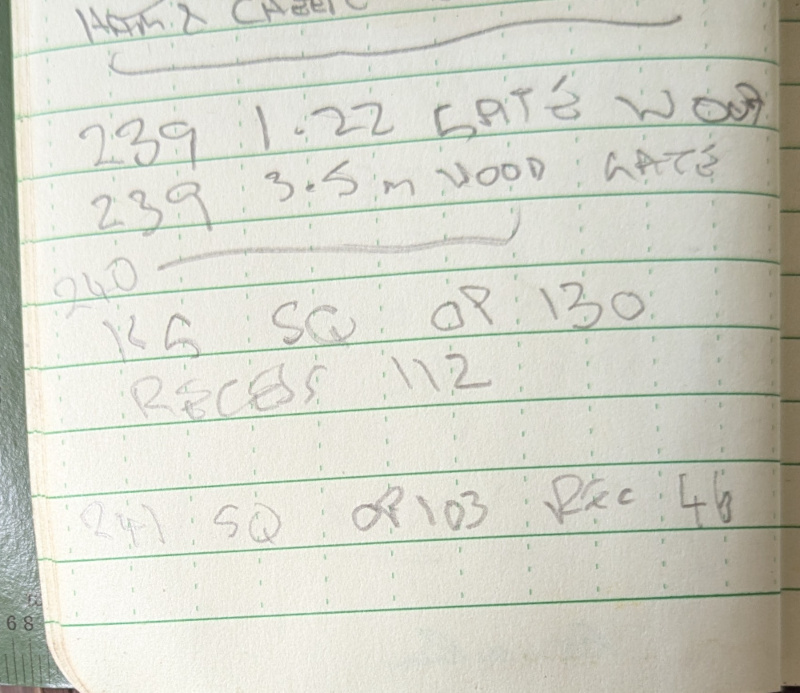 HAM &
239 1.22 GATE WOOD
239 3.5m WOOD GATE
240
KG SQ OP 130
RECESS 112
241 SQ OP 103 REC 46
68